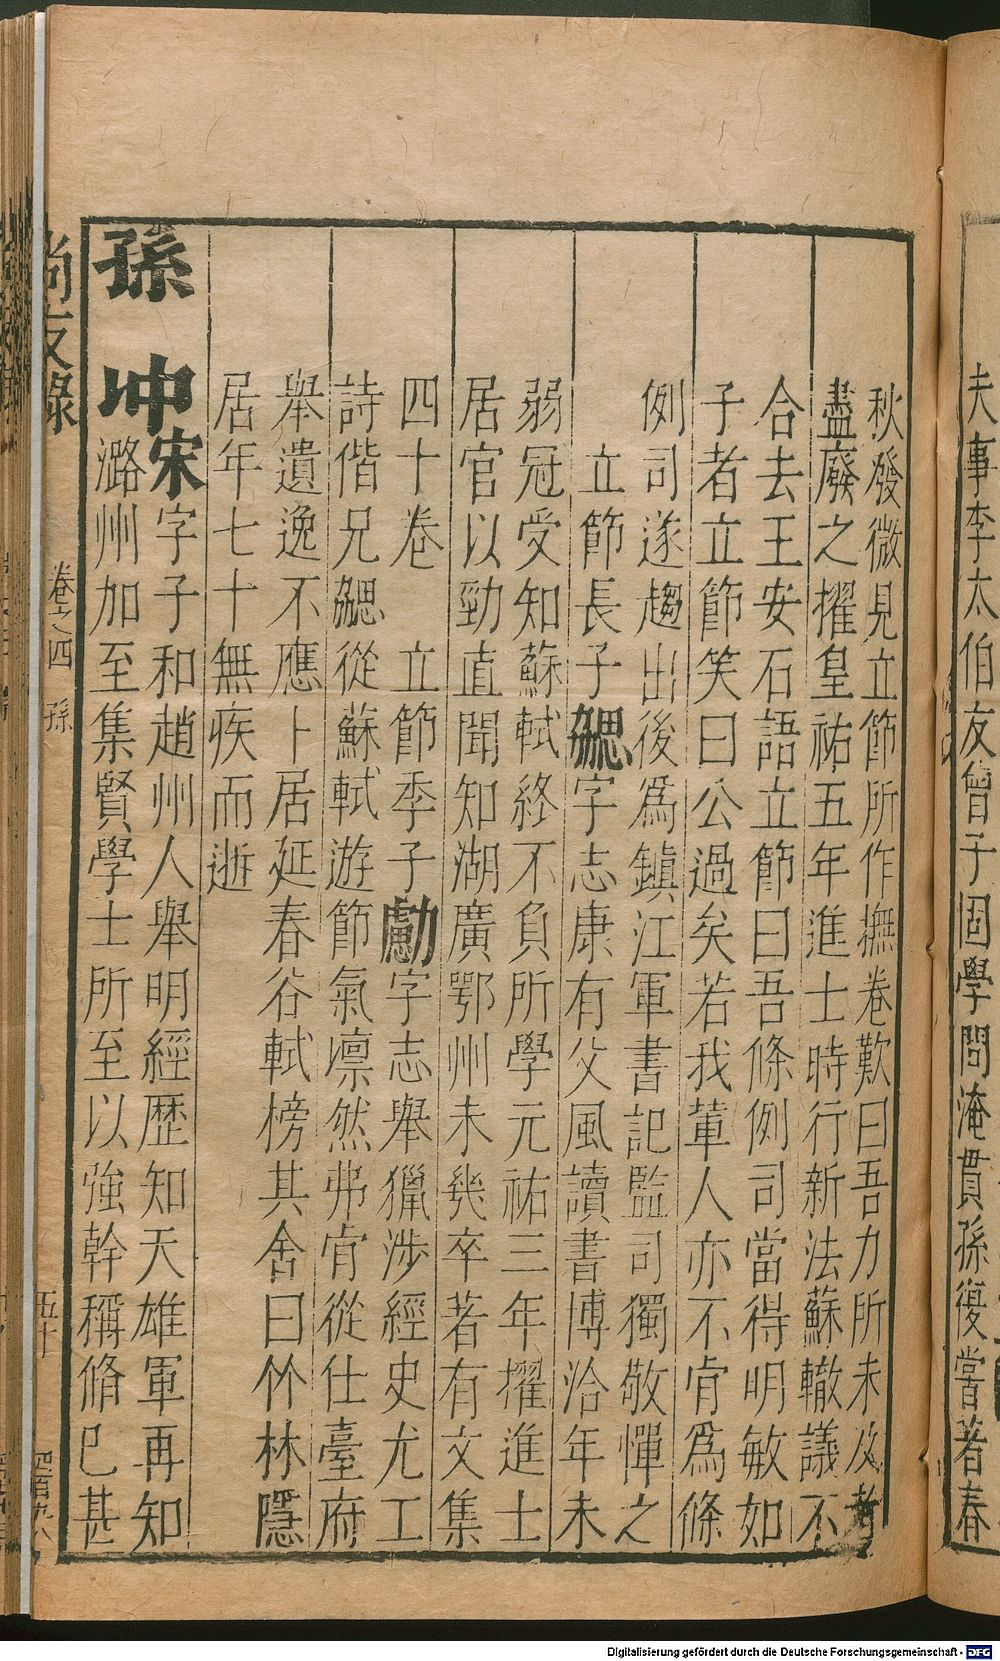 夫事李太伯友曾子固學問淹貫孫復嘗著春
秋發微見立節所作撫卷歎曰吾力所未及者
盡廢之擢皇祐五年進士時行新法蘇轍議不
合去王安石語立節曰吾條例司當得明敏如
子者立節笑曰公過矣若我輩人亦不肯爲條
例司遂趨出後爲鎮江軍書記監司獨敬憚之
立節長子勰字志康有父風讀書博洽年未
弱冠受知蘇軾終不負所學元祐三年擢進士
居官以勁直聞知湖廣鄂州未幾卒著有文集
四十卷　立節季子勴字志舉獵涉經史尤工
詩偕兄勰從蘇軾遊節氣凛然弗肯從仕臺府
舉遺逸不應卜居延春谷軾榜其舍曰竹林隱
居年七十無疾而逝
孫冲宋字子和趙州人舉明經歷知天雄軍再知
潞州加至集賢學士所至以強幹稱脩已甚
尚友錄　卷之四　孫　五十
Digitalisierung gefördert durch die Deutsche Forschungsgemeinschaft - DFG